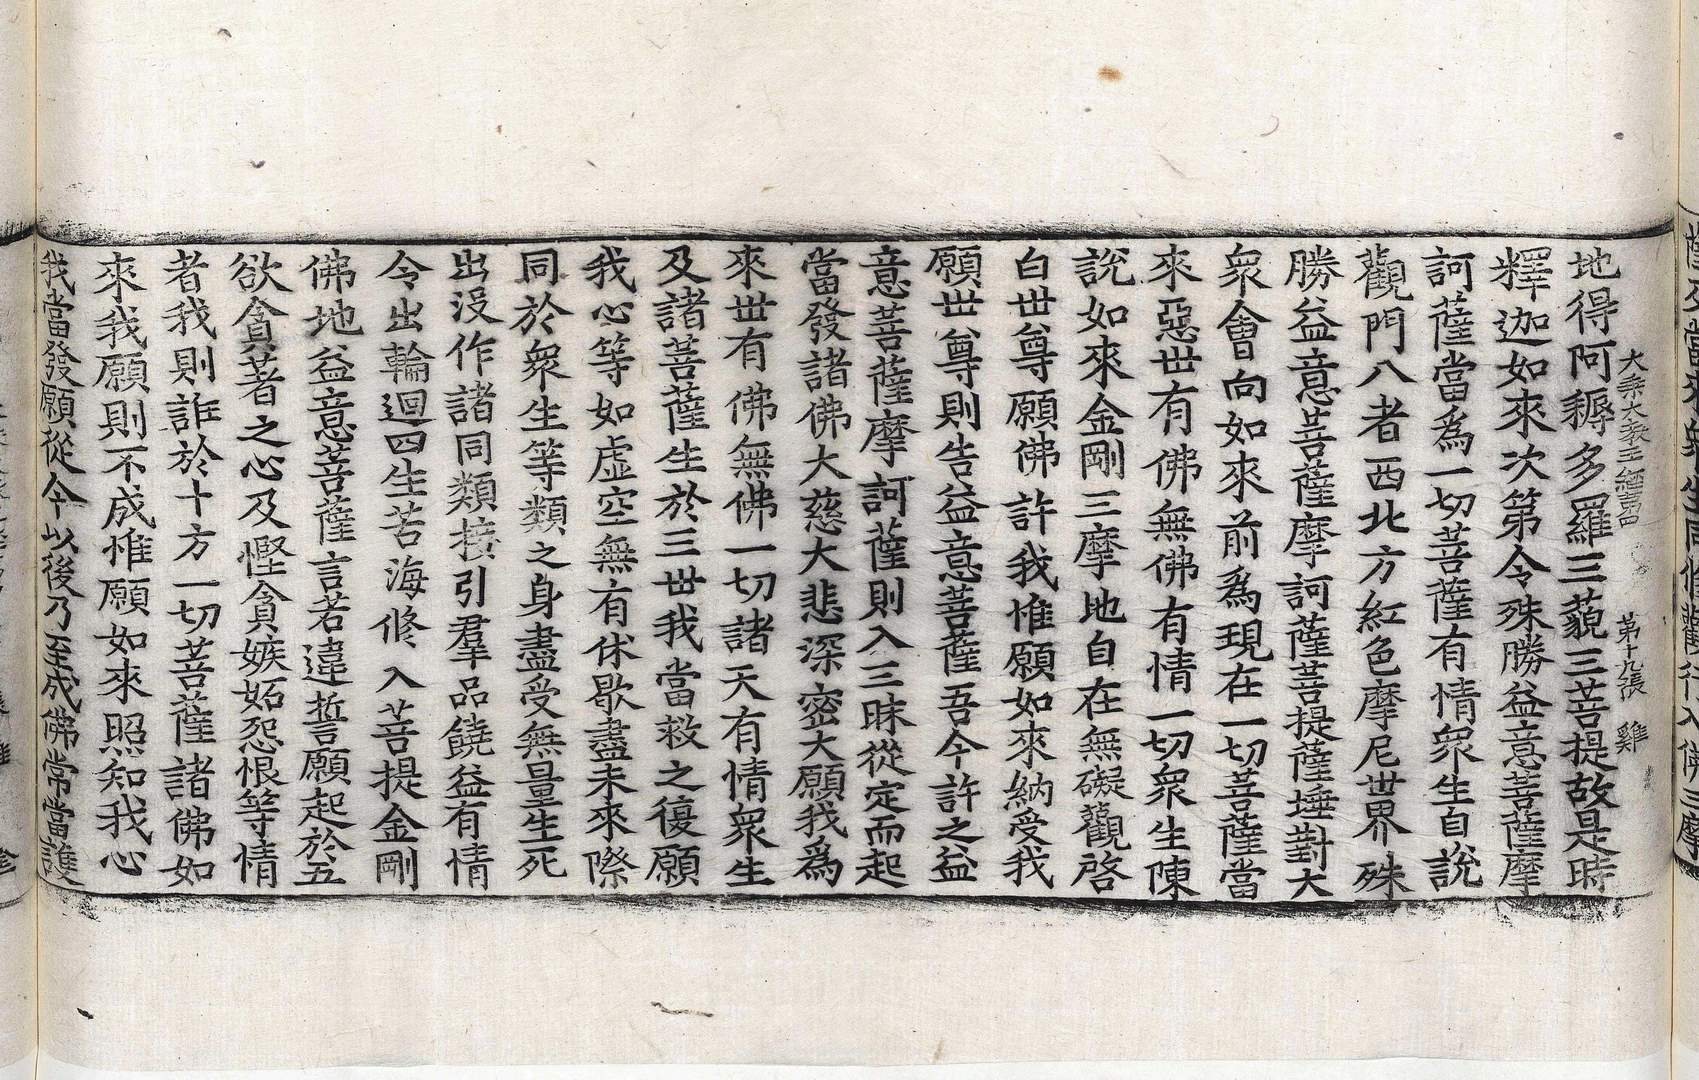 大乘大教王經卷四　第十九張　雞
地得阿耨多羅三藐三菩提故是時
釋迦如來次第令殊勝益意菩薩摩
訶薩當為一切菩薩有情眾生自說
觀門八者西北方紅色摩尼世界殊
勝益意菩薩摩訶薩菩提薩埵對大
衆會向如來前為現在一切菩薩當
來惡世有佛無佛有情一切衆生陳
說如來金剛三摩地自在無礙觀啓
白世尊願佛許我惟願如來納受我
願世尊則告益意菩薩吾今許之益
意菩薩摩訶薩則入三昧從定而起
當發諸佛大慈大悲深密大願我為
來世有佛無佛一切諸天有情衆生
及諸菩薩生於三世我當救之復願
我心等如虛空無有休歇盡未來際
同於衆生等類之身盡受無量生死
出沒作諸同類接引羣品饒益有情
令出輪迴四生苦海修入菩提金剛
佛地益意菩薩言若違誓願起於五
欲貪著之心及慳貪嫉妬怨恨等情
者我則誑於十方一切菩薩諸佛如
來我願則不成惟願如來照知我心
我當發願從今以後乃至成佛常當護